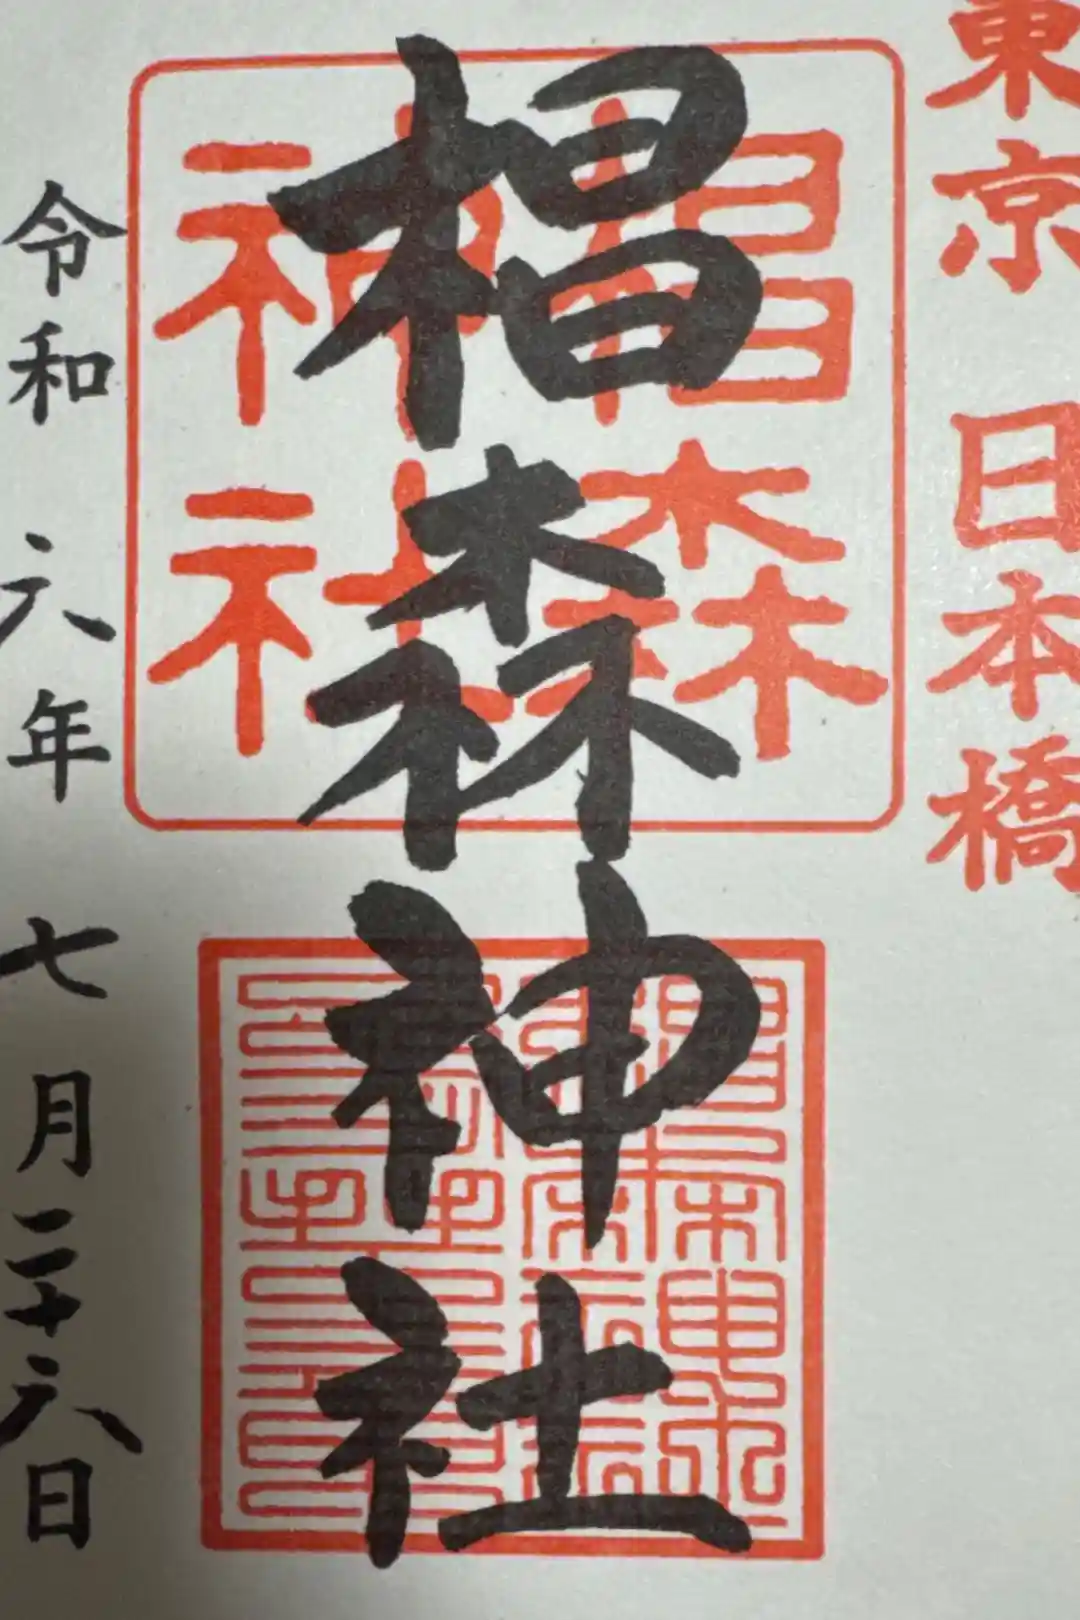 東京 日本橋
椙森神社
椙森
神社
令和六年七月二十六日